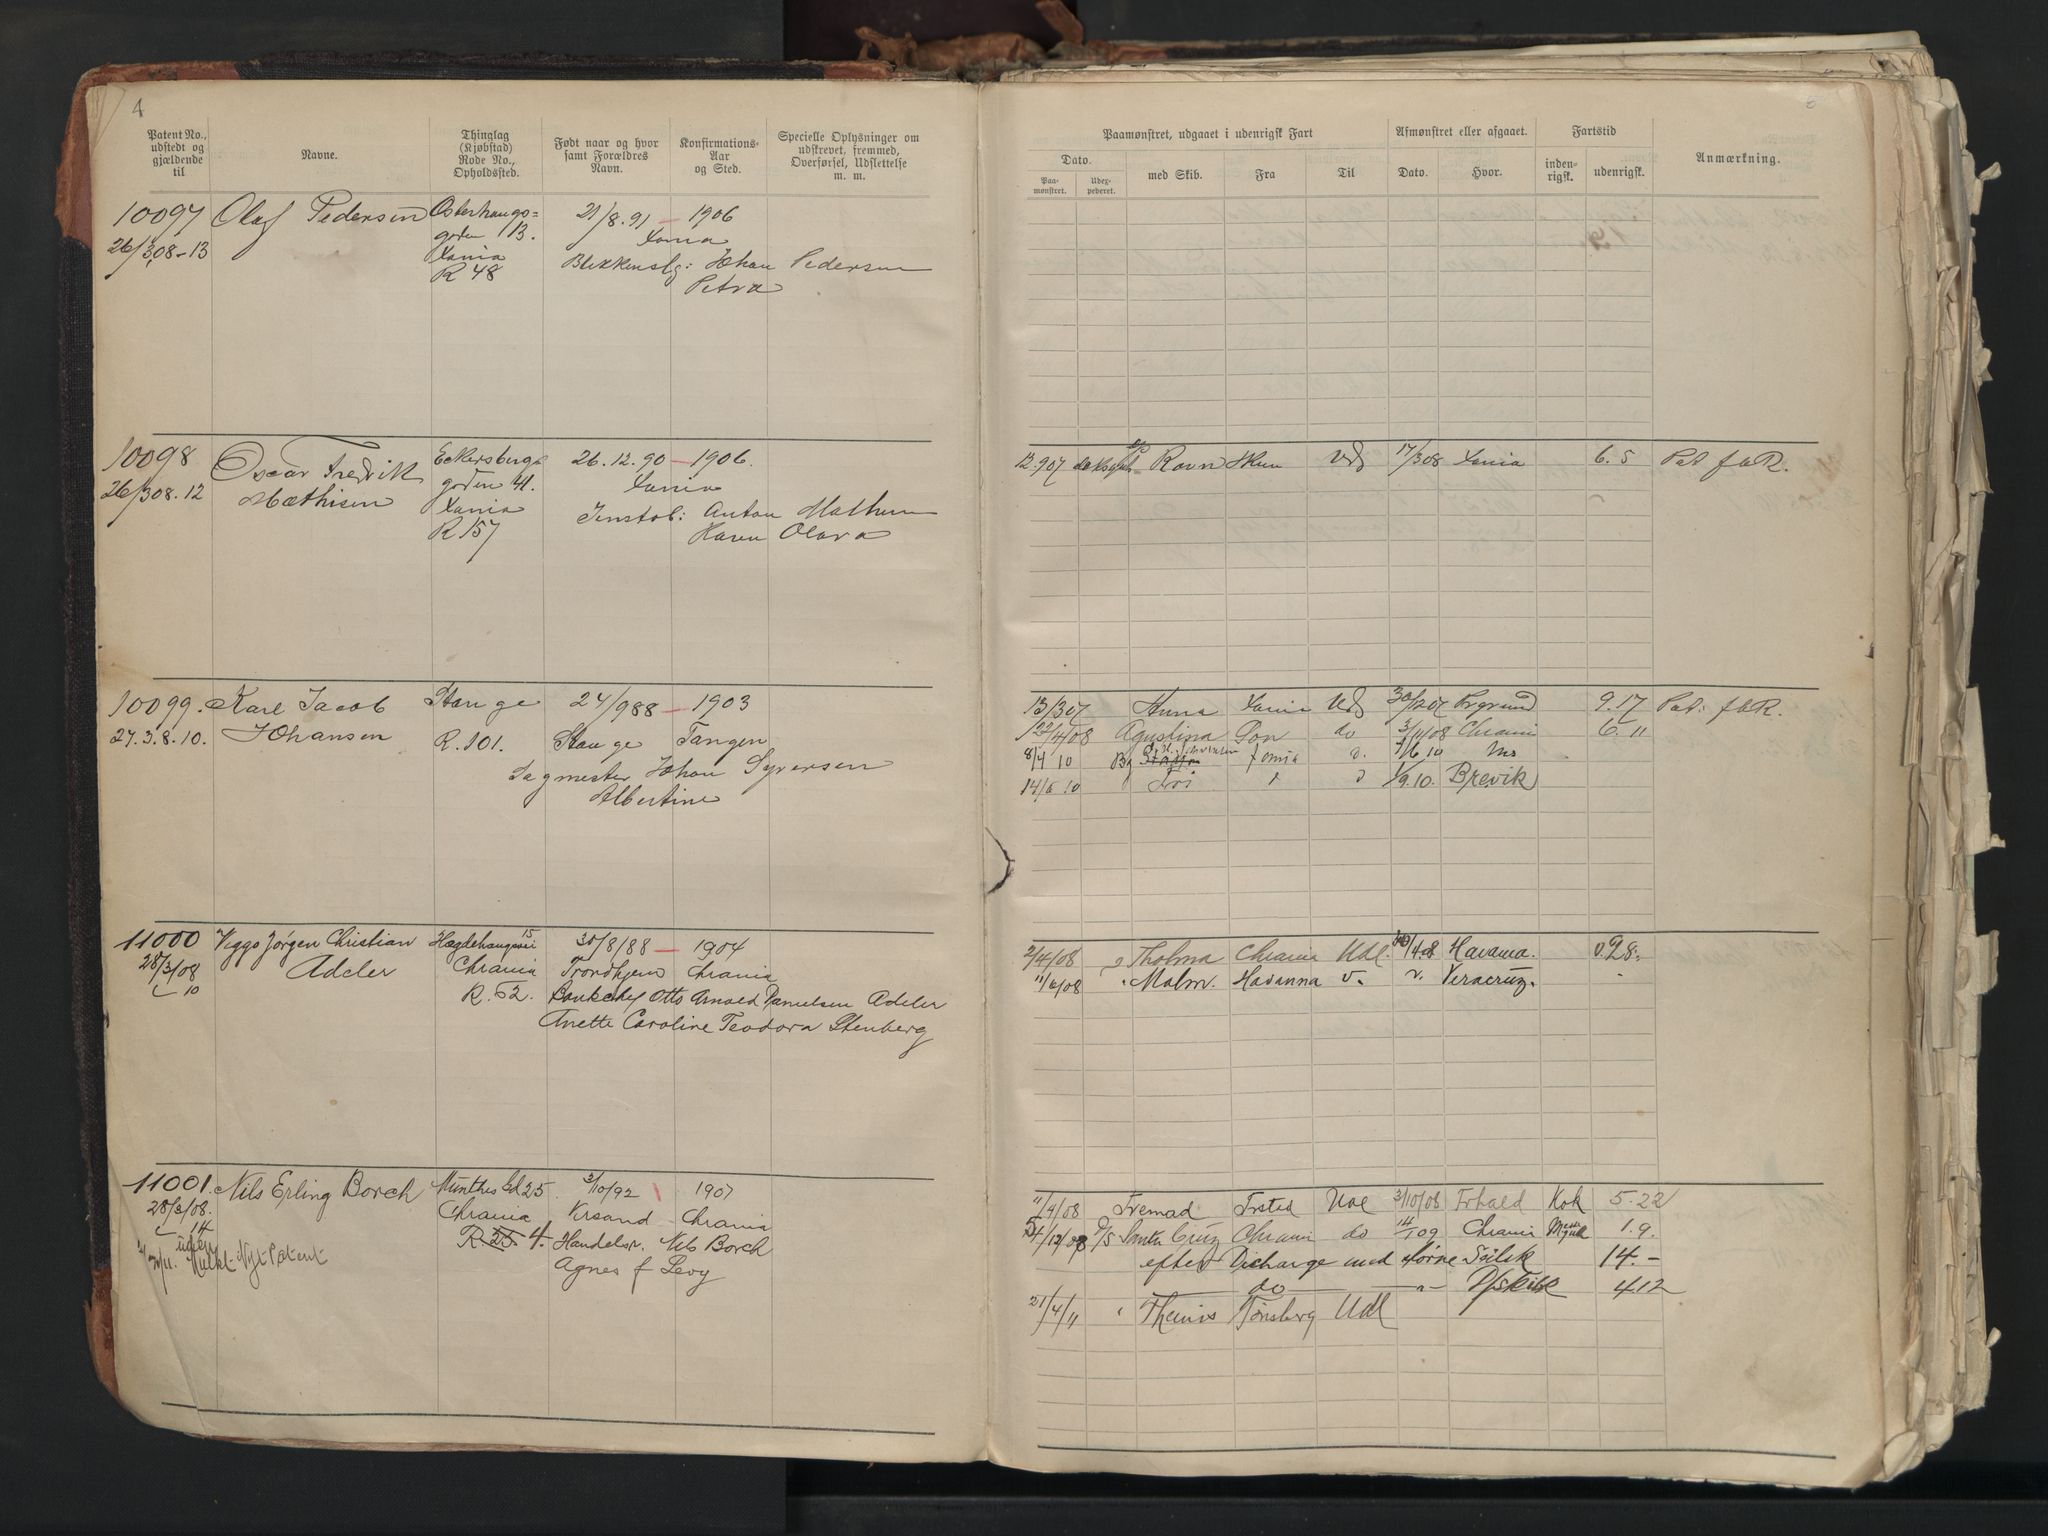 4
Patent No., udstedt og gjældende til
Navne.
Thinglag (Kjøbstad) Rode No., Opholdssted.
Født naar og hvor samt Forældres Navn.
Konfirmations- Aar og Sted.
Specielle Oplysninger om udskrevet, fremmed, Overførsel, Udslettelse m. m.
10097 Olaf Pedersen Osterhaugs= 21/8.91 — 1906
gaden 13. Xania
26/3.08-13 Xania Blikkenslg: Johan Pedersen
R 48 Petra
10098 Oscar Fredrik Eckersbergs 26.12.90 — 1906.
26/3 08.12 Mathisen gaden 41. Xania
Xania Instal: Anton Mathisen
R 157 Karen Olava
10099. Karl Jacob Stange 24/9 88 — 1903
27.3.8.10. Johansen R.101. Stange Tangen
Sagmester Johan Syversen
Albertine
11000 Viggo Jørgen Christian Hægdehaugsvei 15 30/8/88 — 1904
28/3/08 Adeler Chrania Trondhjem Chrania
10 R. 52. Bankchef Otto Arnold Danielsen Adeler
Anette Caroline Teodora Stenberg
11001. Nils Erling Borch Munthes Gd 25 3/10/92 1907
28/3/08. Chrania Krsand Chrania
14 R. 25 4. Handelsr. Nils Borch
uden Mulkt - Nyt Patent Agnes f Levy
Paamønstret, udgaaet i udenrigsk Fart
Afmønstret eller afgaaet.
Fartstid
Anmærkning.
Dato.
Paa- mønstret.
Udex- pederet.
med Skib.
Fra
Til
Dato.
Hvor.
inden- rigsk.
udenrigsk.
12.907 Ravn Skien Uds 17/3 08 Xania 6.5 Pat f a R.
13/3 07 Anna Xania Uds 30/12 07 Prgrund 9.17 Pat: f a R.
22/4/08 Agustina Don do 3/11/08 Chrania 6.11
8/4 10 Xania d. 1/6 10
14/6 10 Fri d 1/9.10. Brevik
2/4/08 Tholma Chrania Udl. Havana. 0.28
11/6/08 Malm. Havanna v. v. Veracruz.
11/4/08 Fremad Frsted Udl 3/10/08 Frhald Kok 5.22
4/12/08 D/S Santa Cruz Chrania do 14/1 09 Chrania 1.9.
efter Dicharge med Seilsk 14.-
do - D/skibe 4.12
21/4/11 Themis Tønsberg Udl